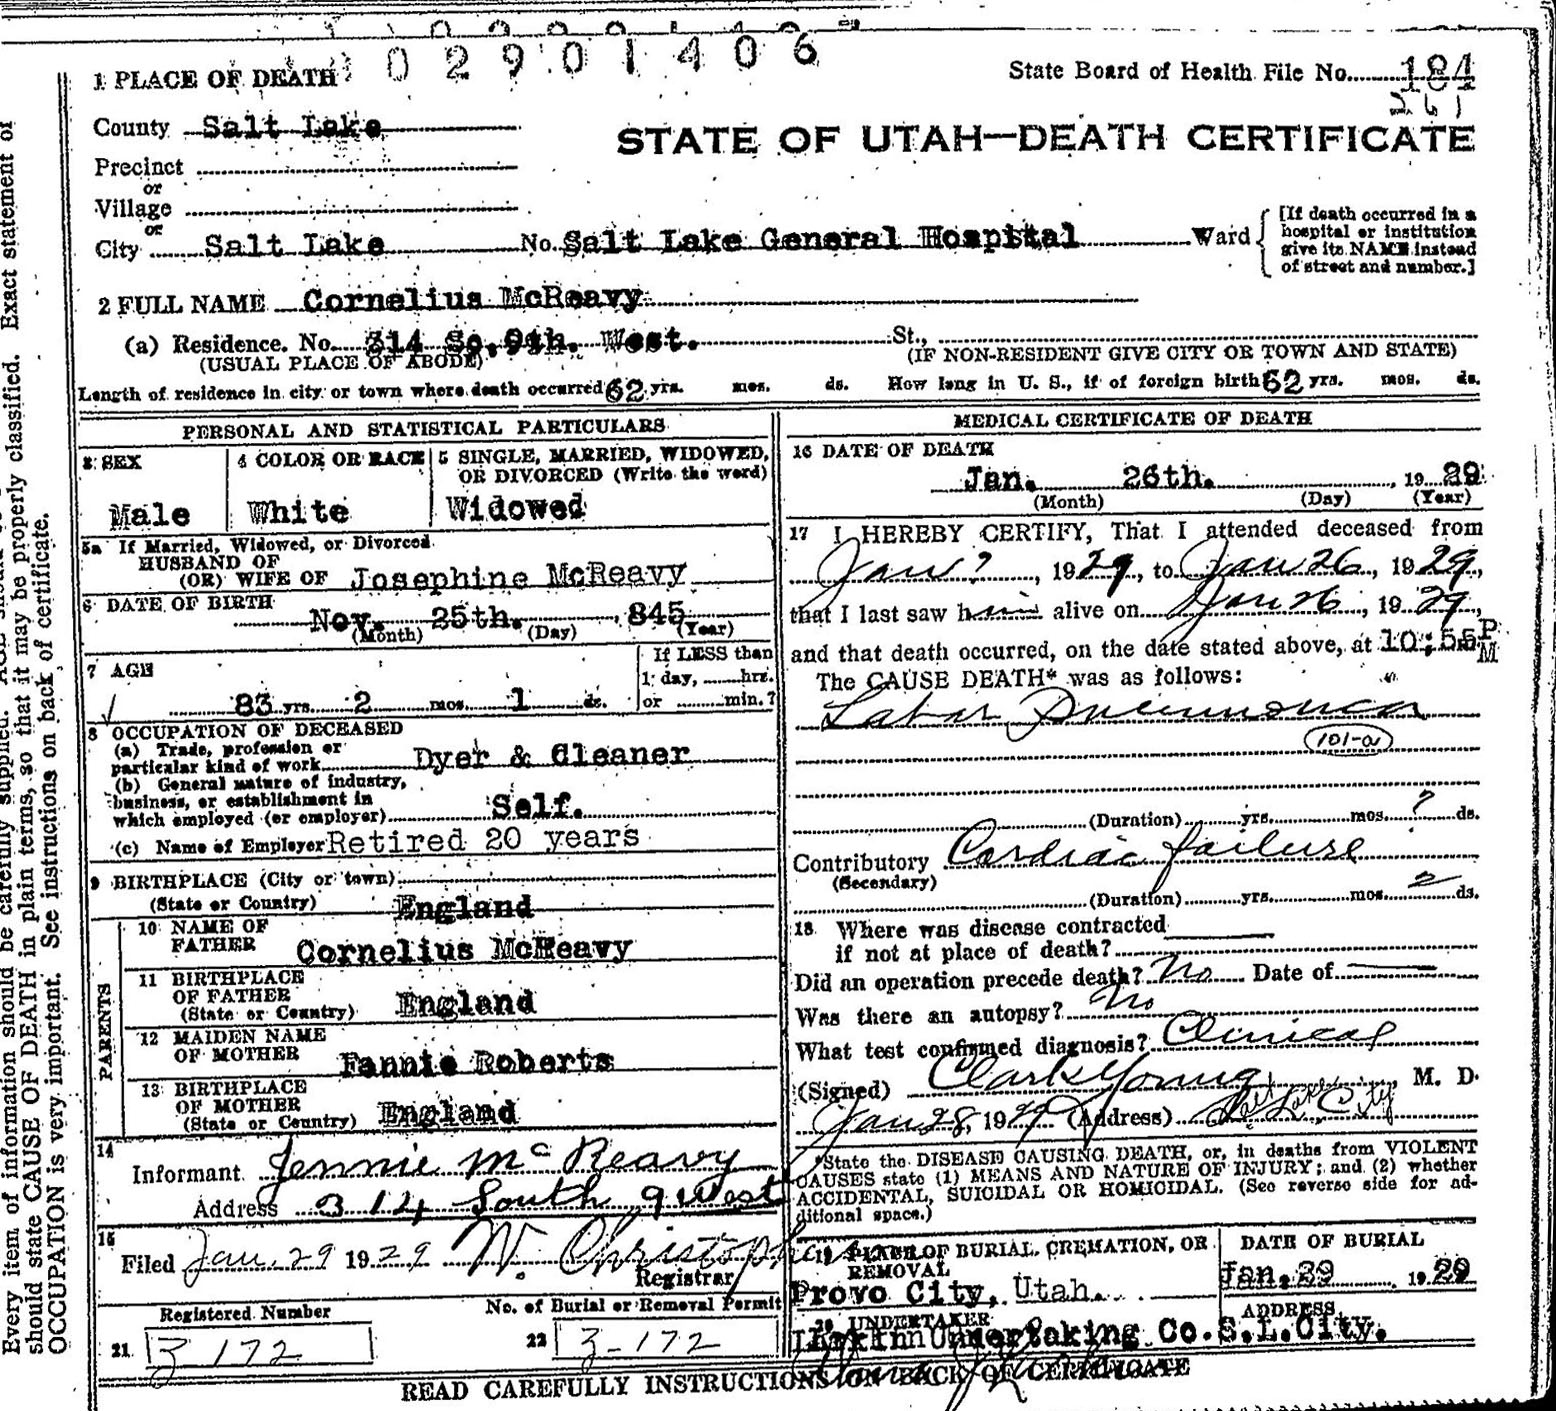 02901406
1 PLACE OF DEATH
State Board of Health File No. 184
261
County Salt Lake
STATE OF UTAH—DEATH CERTIFICATE
Precinct
or
Village
or
City Salt Lake No. Salt Lake General Hospital Ward
[If death occurred in a
hospital or institution
give its NAME instead
of street and number.]
2 FULL NAME Cornelius McReavy
(a) Residence. No. 314 So. 9th. West. St.,
(USUAL PLACE OF ABODE) (IF NON-RESIDENT GIVE CITY OR TOWN AND STATE)
Length of residence in city or town where death occurred 62 yrs. mos. ds. How long in U. S., if of foreign birth 62 yrs. mos. ds.
PERSONAL AND STATISTICAL PARTICULARS
3 SEX
Male
4 COLOR OR RACE
White
5 SINGLE, MARRIED, WIDOWED,
OR DIVORCED (Write the word)
Widowed
5a If Married, Widowed, or Divorced
HUSBAND OF
(OR) WIFE OF Josephine McReavy
6 DATE OF BIRTH
Nov. 25th. 845
(Month) (Day) (Year)
7 AGE
83 yrs. 2 mos. 1 ds.
If LESS than
1 day, hrs.
or min.?
8 OCCUPATION OF DECEASED
(a) Trade, profession or
particular kind of work Dyer & Cleaner
(b) General nature of industry,
business, or establishment in
which employed (or employer) Self.
(c) Name of Employer Retired 20 years
9 BIRTHPLACE (City or town)
(State or Country) England
PARENTS
10 NAME OF
FATHER Cornelius McReavy
11 BIRTHPLACE
OF FATHER
(State or Country) England
12 MAIDEN NAME
OF MOTHER Fannie Roberts
13 BIRTHPLACE
OF MOTHER
(State or Country) England
14
Informant Jennie McReavy
Address 314 South 9 West
15
Filed Jan. 29 1929 W. Christopherson
Registrar
Registered Number
21 3172
No. of Burial or Removal Permit
22 3-172
MEDICAL CERTIFICATE OF DEATH
16 DATE OF DEATH
Jan. 26th. , 1929
(Month) (Day) (Year)
17 I HEREBY CERTIFY, That I attended deceased from
Jan ? , 1929, to Jan 26, 1929,
that I last saw him alive on Jan 26, 1929,
and that death occurred, on the date stated above, at 10:55 PM
The CAUSE DEATH* was as follows:
Lobar Pneumonia
101-a
(Duration) yrs. mos. ? ds.
Contributory Cardiac failure
(Secondary)
(Duration) yrs. mos. 2 ds.
18 Where was disease contracted
if not at place of death?
Did an operation precede death? No Date of
Was there an autopsy? No
What test confirmed diagnosis? Clinical
(Signed) Clark Young, M. D.
Jan 28, 1929 (Address) Salt Lake City
*State the DISEASE CAUSING DEATH, or, in deaths from VIOLENT
CAUSES state (1) MEANS AND NATURE OF INJURY; and (2) whether
ACCIDENTAL, SUICIDAL OR HOMICIDAL. (See reverse side for ad-
ditional space.)
19 PLACE OF BURIAL, CREMATION, OR
REMOVAL
Provo City, Utah.
DATE OF BURIAL
Jan. 29 1929
20 UNDERTAKER
ADDRESS
Larkin Undertaking Co. S.L.City.
READ CAREFULLY INSTRUCTIONS ON BACK OF CERTIFICATE
Every item of information should be carefully supplied.
should state CAUSE OF DEATH in plain terms, so that it may be properly classified. Exact statement of
OCCUPATION is very important. See instructions on back of certificate.